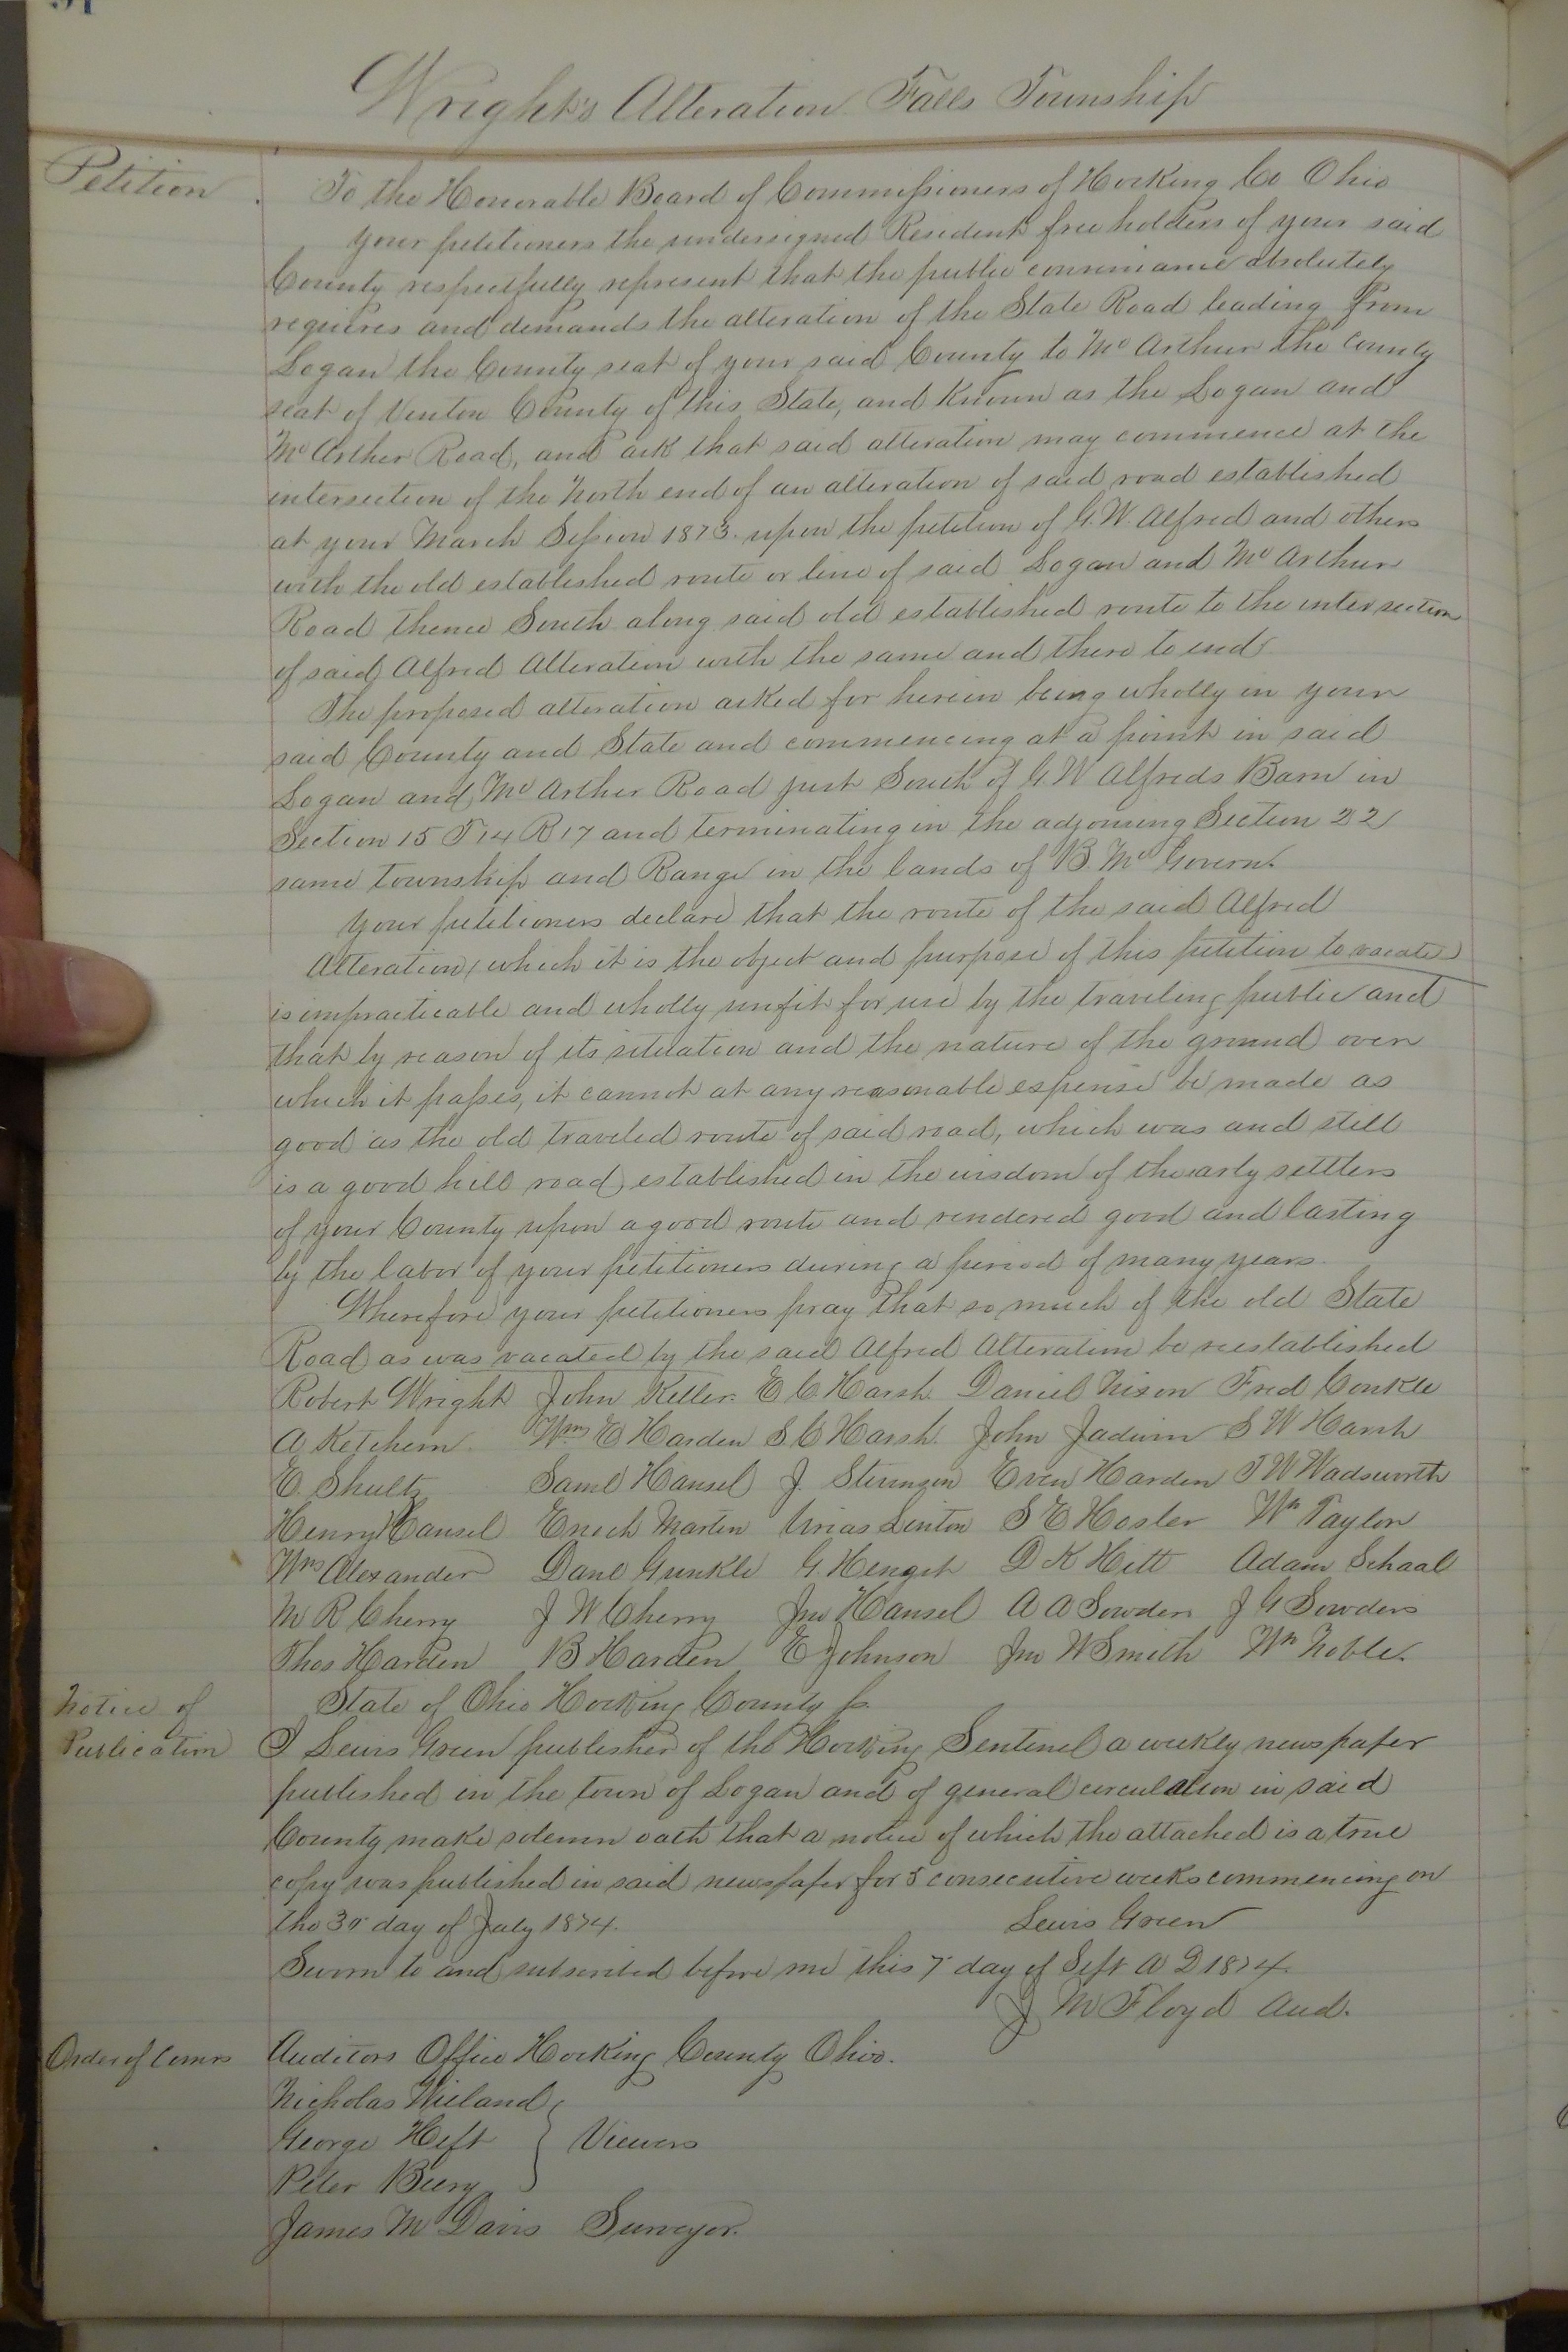 Wright's Alteration Falls Township
Petition
To the Honorable Board of Commissioners of Hocking Co Ohio
Your petitioners the undersigned Resident free holders of your said
County respectfully represent that the public convenience absolutely
requires and demands the alteration of the State Road leading from
Logan the County seat of your said County to Mc Arthur the County
seat of Vinton County of this State, and Known as the Logan and
Mc Arther Road, and ask that said alteration may commence at the
intersection of the North end of an alteration of said road established
at your March Session 1873. upon the petition of G. W. Alfred and others
with the old established route or line of said Logan and Mc Arthur
Road thence South along said old established route to the intersection
of said Alfred Alteration with the same and there to end
The proposed alteration asked for herein being wholly in your
said County and State and commencing at a point in said
Logan and Mc Arther Road just South of G. W Alfreds Barn in
Section 15 T 14 R 17 and terminating in the adjoining Section 22
same township and Range in the lands of B. Mc Govern.
Your petitioners declare that the route of the said Alfred
Alteration, which it is the object and purpose of this petition to vacate
is impracticable and wholly unfit for use by the traveling public and
that by reason of its situation and the nature of the ground over
which it passes, it cannot at any reasonable expense be made as
good as the old traveled route of said road, which was and still
is a good hill road established in the wisdom of the early settlers
of your County upon a good route and rendered good and lasting
by the labor of your petitioners during a period of many years.
Wherefore your petitioners pray that so much of the old State
Road as was vacated by the said Alfred Alteration be reestablished
Robert Wright John Keller. E C Harsh Daniel Nixon Fred Conkle
A Ketchem. Wm E Harden S. C Harsh. John S W Harsh
E. Shultz Saml Hansel J. Stevenson Even Harden T W Wadsworth
Henry Hansel Enoch Martin Urias Linton S E Hosler Wm Taylor
Wms Alexander Danl Gunkle G. Hengst D K Hitt Adam Schaal
M R Cherry J W Cherry Jno Hansel A A Sowders J G Sowders
Thos Harden B Harden E Johnson Jno W Smith Wm Noble.
Notice of
Publication
State of Ohio Hocking County ss.
I Lewis Green publisher of the Hocking Sentinel a weekly newspaper
published in the town of Logan and of general circulation in said
County make solemn oath that a notice of which the attached is a true
copy was published in said newspaper for 5 consecutive weeks commencing on
the 30" day of July 1874.
Lewis Green
Sworn to and subscribed before me this 7" day of Sept A D 1874.
J M Floyd Aud.
Order of Comrs
Auditors Office Hocking County Ohio.
Nicholas Wieland
George Heft } Viewers
Peter Beery
James M Davis Surveyor.